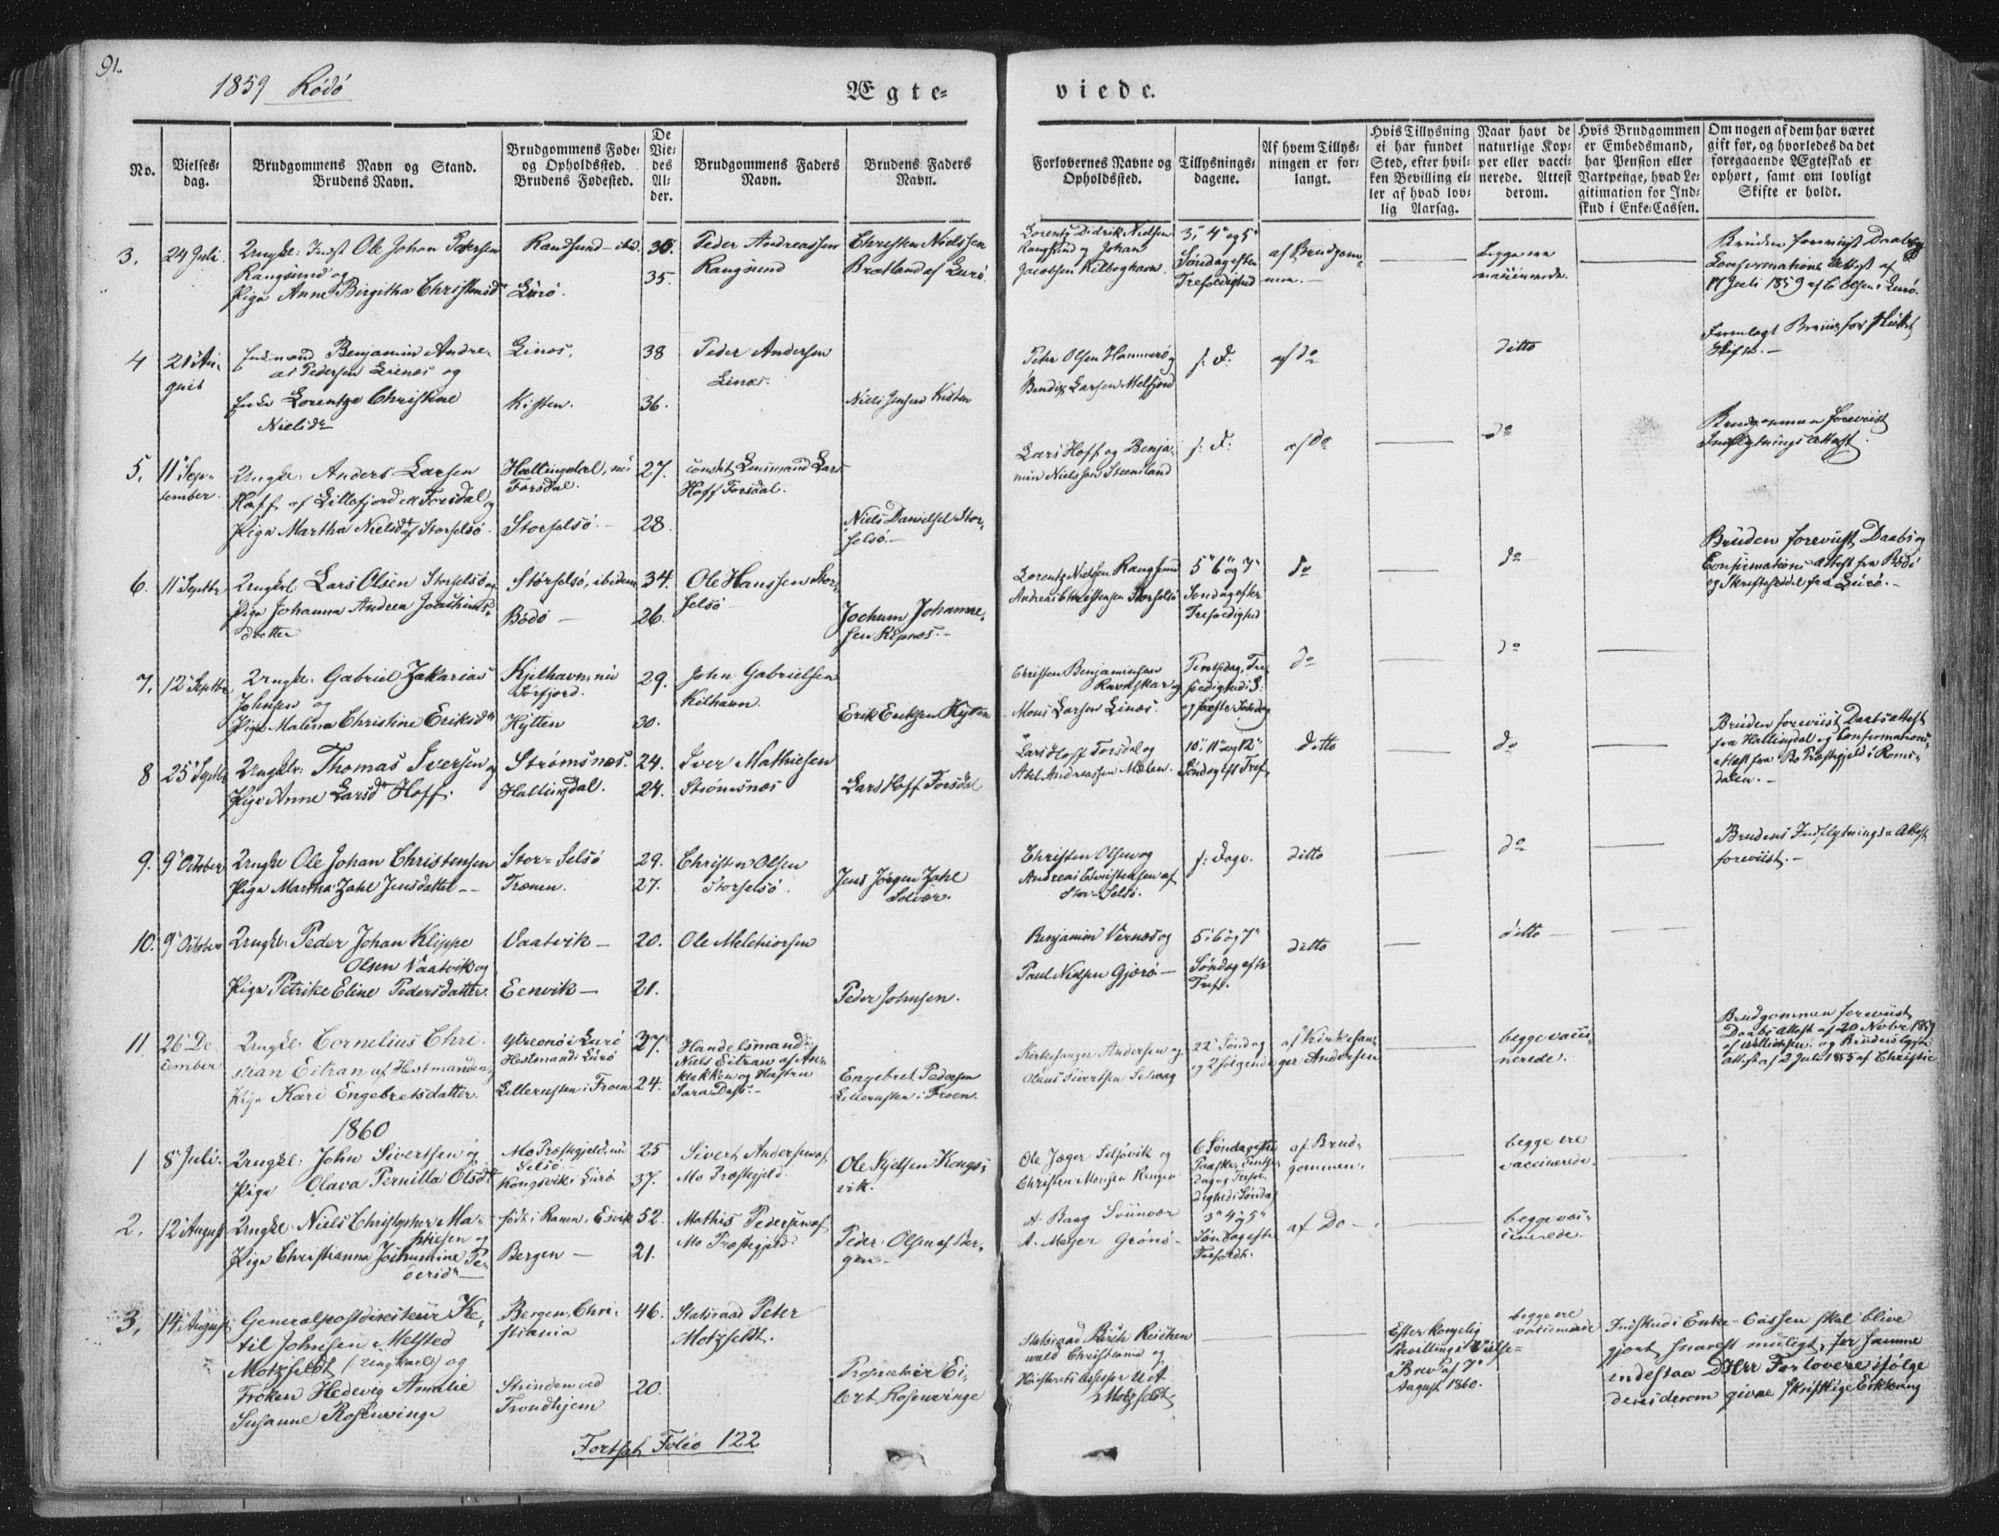 91.
1859 Rödö
Ægte-
viede.
No.
Vielses-
dag.
Brudgommens Navn og Stand.
Brudens Navn.
Brudgommens Føde-
og Opholdssted.
Brudens Fødested.
De
Vie-
des
Al-
der.
Brudgommens Faders
Navn.
Brudens Faders
Navn.
Forlovernes Navne og
Opholdssted.
Tillysnings-
dagene.
Af hvem Tillys-
ningen er for-
langt.
Hvis Tillysning
ei har fundet
Sted, efter hvil-
ken Bevilling el-
ler af hvad lov-
lig Aarsag.
Naar havt de
naturlige Kop-
per eller vacci-
nerede. Attest
derom.
Hvis Brudgommen
er Embedsmand,
har Pension eller
Vartpenge, hvad Le-
gitimation for Ind-
skud i Enke-Cassen.
Om nogen af dem har været
gift før, og hvorledes da det
foregaaende Ægteskab er
ophørt, samt om lovligt
Skifte er holdt.
3. 24 Juli
Ungk: Indst Ole Johan Pedersen
Rangsund og
Pige Anne Birgitha Christensd
Randsund - ibid.
Lürö.
35.
Peder Andreassen
Rangsund
Christen Nielssen
Bratland af Lurö
Lorentz Didrik Nielsen
Rangsund og Johan
Jacobsen Kilboghavn.
3, 4 og 5
Søndag efter
Trefoldighed
af Brudgom-
men.
begge ere
vaccinerede.
Bruden foreviist Daabs og
Confirmations Attest af
17 Juli 1859 af Olsen i Lurö.
4 21 Au-
gust
Enkemand Benjamin Andre-
as Pedersen Linæs og
Enke Lorentze Christine
Nielsdr
Linæs.
Kisten.
38
36.
Peder Andersen
Linæs.
Niels Jensen Kisten
Peter Olsen Hammerö og
Bendix Larsen Melfjord
s: D:
af do
ditto
Foreilagt Beviis for sluttet
Skifte.
5. 11 Sep-
tember.
Ungk: Anders Larsen
Hoff af Lillefjord Forsdal og
Pige Martha Nielsdr af Storselsö.
Hallingdal, nu
Forsdal.
Storselsö.
27.
28.
const Lensmand Lars
Hoff Forsdal.
Niels Danielsel Stor-
selsö.
Lars Hoff og Benja-
min Nielsen Steenland
s: D:
af do
do
Brudgommen foreviist
Indflytnings Attest.
6. 11 Septbr
Ungkl Lars Olsen Storselsö og
Pige Johanna Andrea Joachims-
datter
Störselsö, ibidem
Bodö
34.
26.
Ole Hanssen Stor-
selsö
Jochum Johanne-
sen Ripnæs.
Lorentz Nielsen Rangsund
Andreas Christensen Storselsö
5 6 og 7
Sondag efter
Trefoldighed
do
do
Bruden foreviist Daabs og
Confirmations Attest fra Bodö
og Skriftseddel fra Lurö.
7. 12 Septbr
Ungk: Gabriel Zakarias
Johnsen og
Pige Malena Christine Eriksdr
Kjelhavn, nu
Hytten
29.
30.
John Gabrielsen
Kilhavn.
Erik Eriksen Hytten
Christen Benjaminsen
Ravnskar og
Mons Larsen Linæs.
Pintsdag, Tre-
foldighed S:
og første Søndag
do
do
8 25 Septbr
Ungk: Thomas Iversen og
Pige Anne Larsdr Hoff.
Strömsnæs.
Hallingdal.
24.
24.
Iver Mathiesen
Strömsnæs
Lars Hoff Forsdal
Lars Hoff Forsdal og
Abel Andreassen Melen.
10, 11 og 12
Søndag eft Tref
ditto
do
Bruden foreviist Daabsattest
fra Hallingdal og Confirmations-
attest fra Bo Præstegjeld i Roms-
dalen.
9. 9 October
Ungk Ole Johan Christensen
Pige Martha Zahl Jensdatter
Stor-Selsö
Trænen.
29.
27.
Christen Olsen
Storselsö.
Jens Jörgen Zahl
Solvær.
Christen Olsen og
Andreas Christensen af
Stor-Selsö.
s: Dage.
ditto
do
Brudens Indflytnings-Attest
foreviist.
10. 9 October
Ungk: Peder Johan Klippe
Olsen Vaatvik og
Pige Petrike Eline Pedersdatter.
Vaatvik
Eenvik
20.
21.
Ole Melchiorsen
Peder Johnsen.
Benjamin Vernæs og
Paul Nielsen Gjerö
5, 6 og 7
Søndag efter
Tref.
ditto
ditto
11. 26 De-
cember
Ungk: Cornelius Chri-
stian Eitran af Hestmanden og
Pige Kari Engebretsdatter.
Ytreonö i Lurö
Hestmand i Lürö
Lillerusten i Froen
27.
24.
Handelsmand
Niels Eitran af An-
klakken og Hustru
Sara Dass.
Engebret Pedersen
Lillerusten i Froen.
Kirkesanger Andersen og
Olaus Sivertsen Selvaag
22 Søndag
og 2 følgende
af Kirkesan-
ger Andersen
begge vacci-
nerede.
Brudgommen foreviist
Daabs Attest af 20 Novbr 1859
og Brudens
attest af 2 Juli 1855 af Christie
1860
1 8 Juli.
Ungk: John Sivertsen og
Pige Olava Pernilla Olsdr
Mo Præstgjeld, nu
Selsö
Kongsvik i Lurö
25
37.
Sivert Andersen af
Mo Præstgjeld.
Ole Kjelsen Kongs-
vik.
Ole Jæger Selsövik og
Christen Monsen Ringen
6 Søndag efter
Paaske, Pintse-
dag og Trefol-
dighed Søndag
af Brud-
gommen.
begge ere
vaccinerede.
2. 12 August
Ungk: Niels Christopher Ma-
thiesen og
Pige Christianna Jochumine Pe-
dersdr
født i Ranen, Esvik
Bergen
52.
21.
Mathis Pedersen af
Mo Præstegjeld
Peder Olsen af Ber-
gen
A Baag Sviinvær
A. Meyer Grönö
3 4 og 5
Søndag efter
Trefoldh.
af Do
begge vac-
cinerede.
3. 14 August
Generalpostdirecteur Ke-
til Johnsen Melsted
Motzfeldt (Ungkarl) og
Frøken Hedevig Amalie
Susanne Rosenvinge
Bergen, Chri-
stiania
Strinden ved
Trondhjem
46.
20.
Statsraad Peter
Motzfeldt.
Proprietær Ei-
lert Rosenvinge
Statsraad Birch Reichen
wald Christiania og
Höiesterets Assessor U A
Motzfeldt
Efter kongelig
Bevillings Vielse-
Brev af 7
August 1860.
begge ere
vaccinerede
Indskud i Enke-Cassen skal blive
gjort snarest muligt, for samme
indestaa D'Hrr Forlovere ifølge
deres derom givne skriftlige Erklæring
Fortset Folio 122